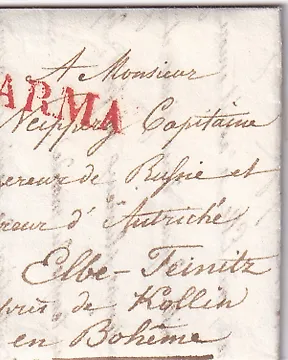 A Monsieur
ARMA
Neipperg Capitaine
ereur de Russie et
reur d'Autriche
Elbe-Teinitz
près de Kollin
en Bohême